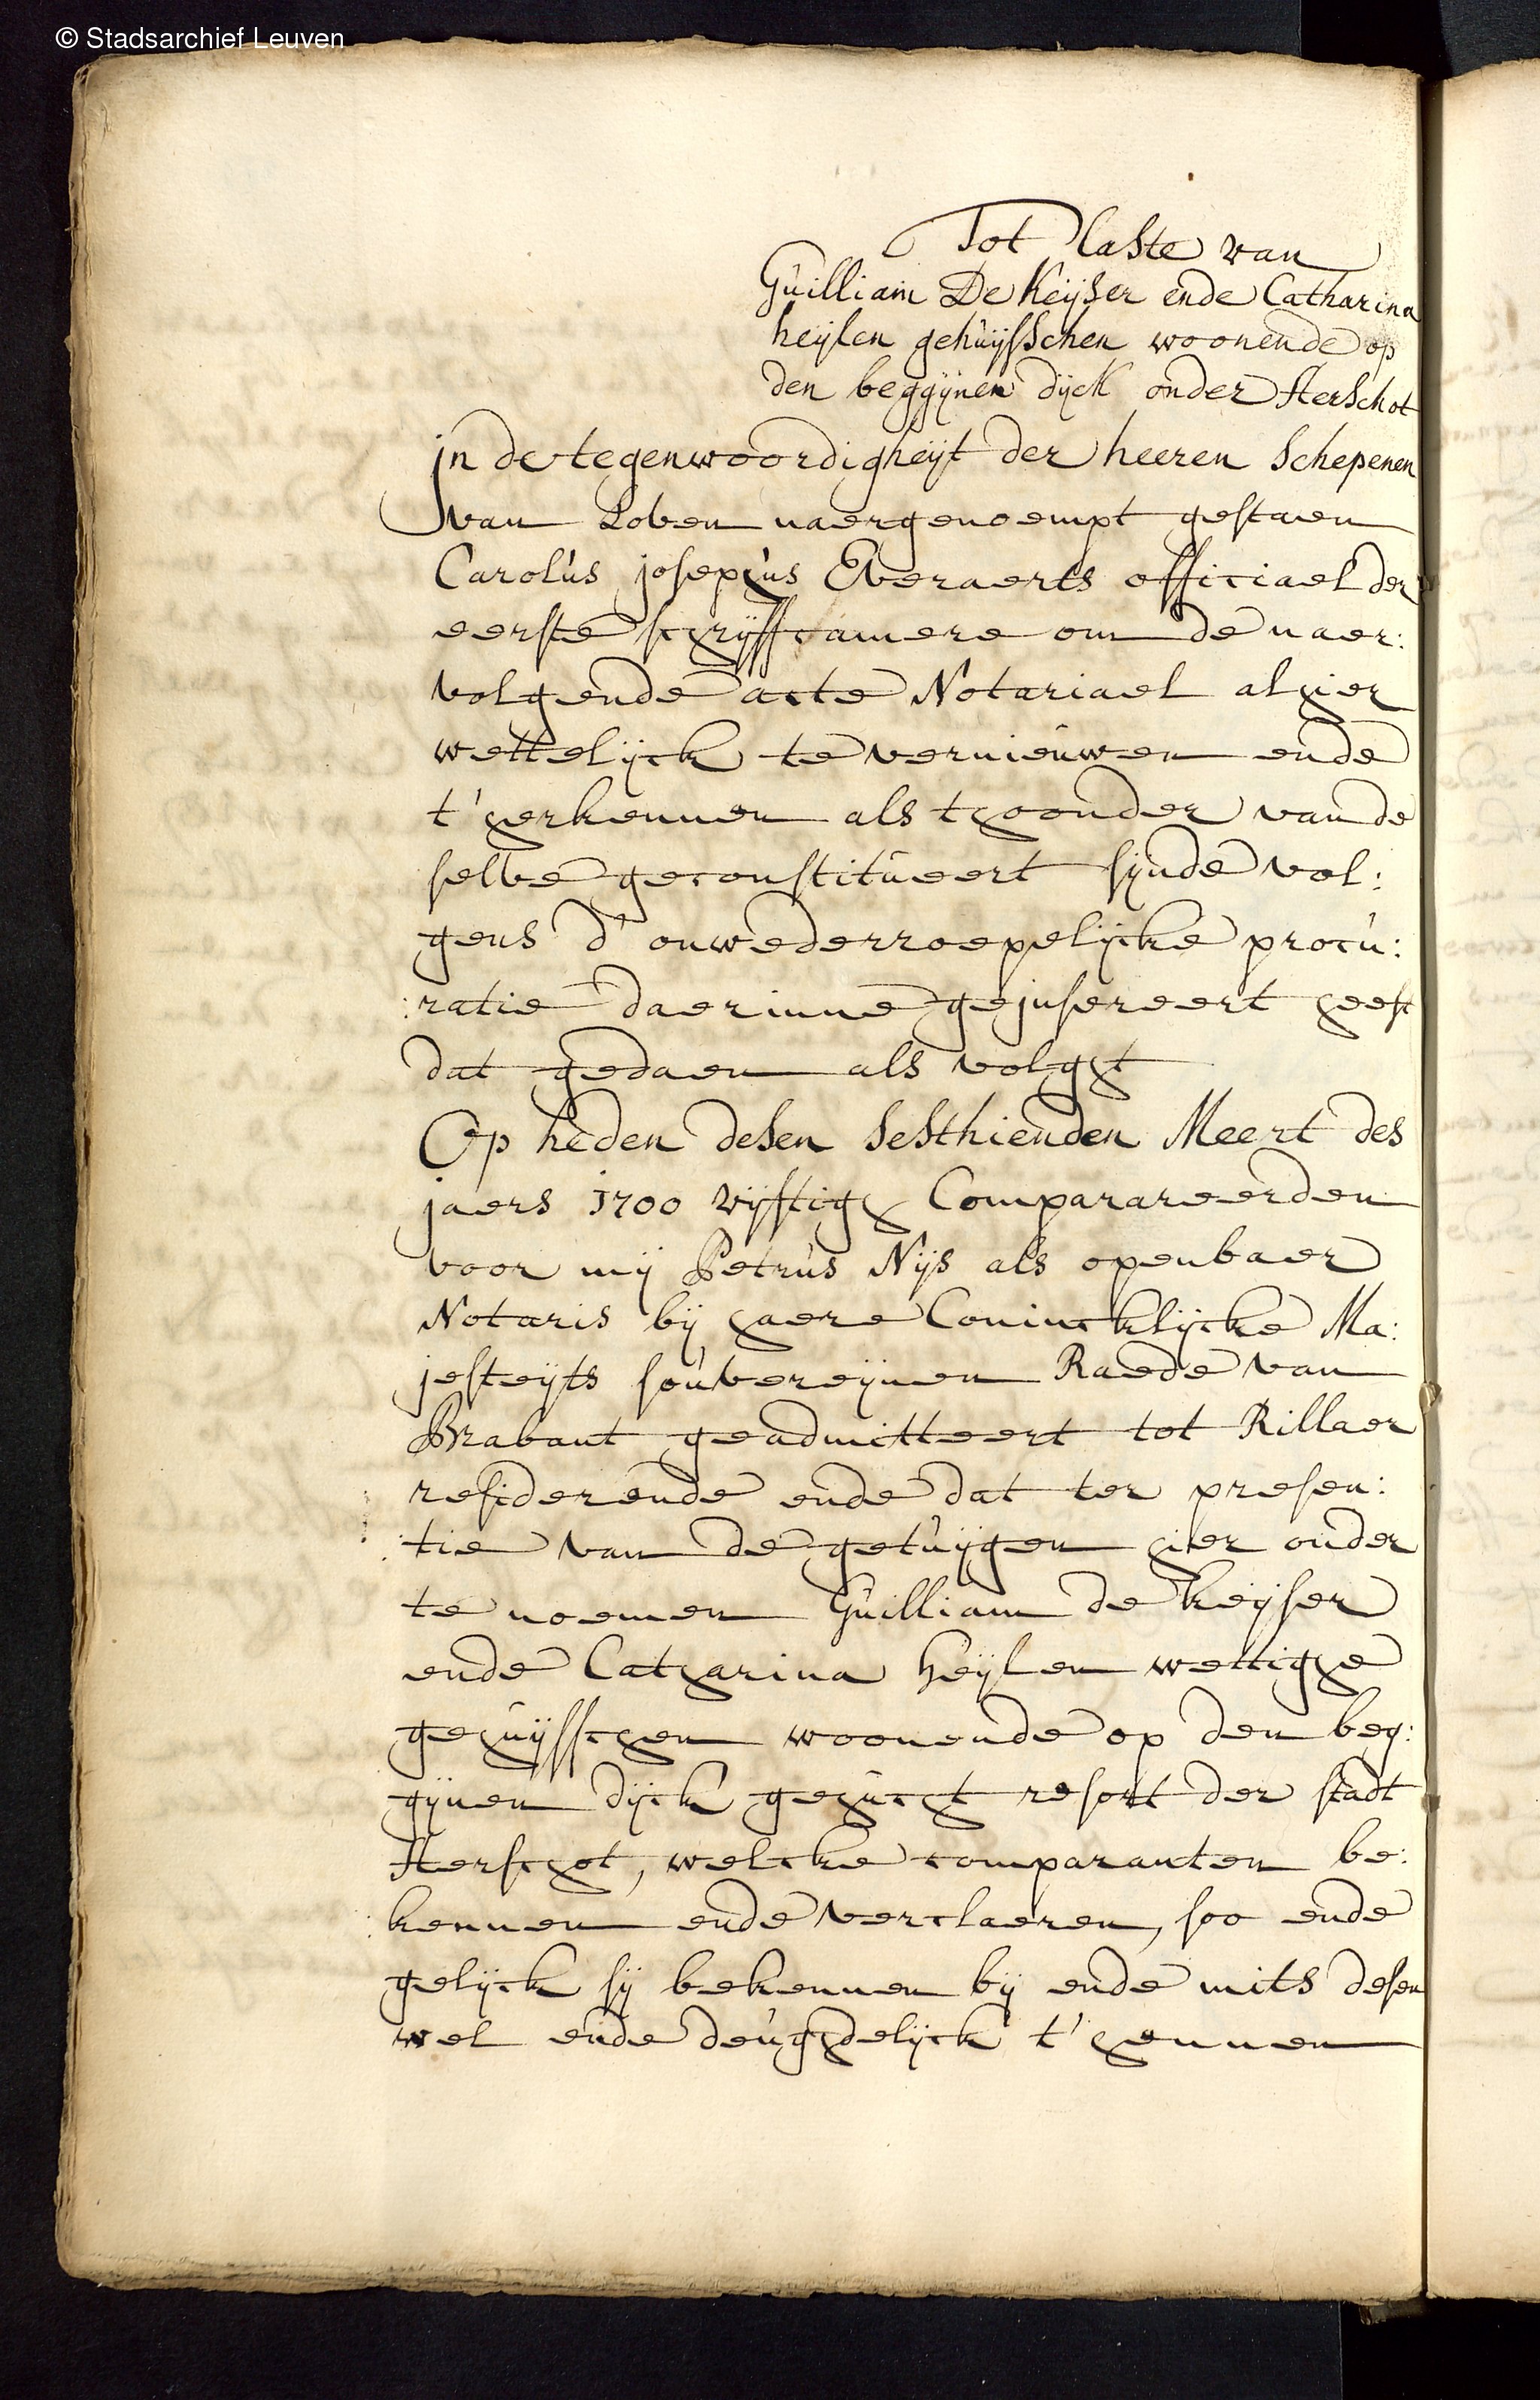 © Stadsarchief Leuven
Tot Laste van
Guilliam De Keijser ende Catharina
heijlen gehuijsschen woonende op
den beggijnen dijck onder Aerschot
jn de tegenwoordigheijt der heeren Schepenen
van Loven naergenoempt gestaen
Carolus josephus Everaerts officiael der
eerste schrijffcamere om de naer:
volgende acte Notariael alhier
wettelijck te vernieuwen ende
t'herkennen als thoonder van de
selve geconstitueert sijnde vol:
gens d'onwederroepelijcke procu:
:ratie daerinne geinsereert heeft
dat gedaen als volght
Op heden desen sesthienden Meert des
jaers 1700 vijftigh Comparareerden
voor mij Petrus Nijs als openbaer
Notaris bij haere Conincklijcke Ma:
jesteijts souvereijnen Raede van
Brabant geadmitteert tot Rillaer
residerende ende dat ter presen:
:tie van de getuijgen hier onder
te noemen Guilliam de keijser
ende Catharina heijlen wettighe
gehuijsschen woonende op den beg:
gijnen dijck gehucht resort der stadt
Aerschot, welcke comparanten be:
:kennen ende verclaeren, soo ende
gelijck sij bekennen bij ende mits desen
wel ende deughdelijck t'hunnen